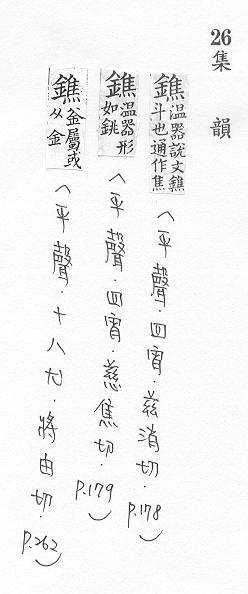 26集韻
鐎溫器說文鐎斗也通作焦（平聲．四宵．茲消切．P.178）
鐎溫器形如銚（平聲．四宵．慈焦切．P.179）
鐎釜屬或从金（平聲．十八尤．將由切．P.262）